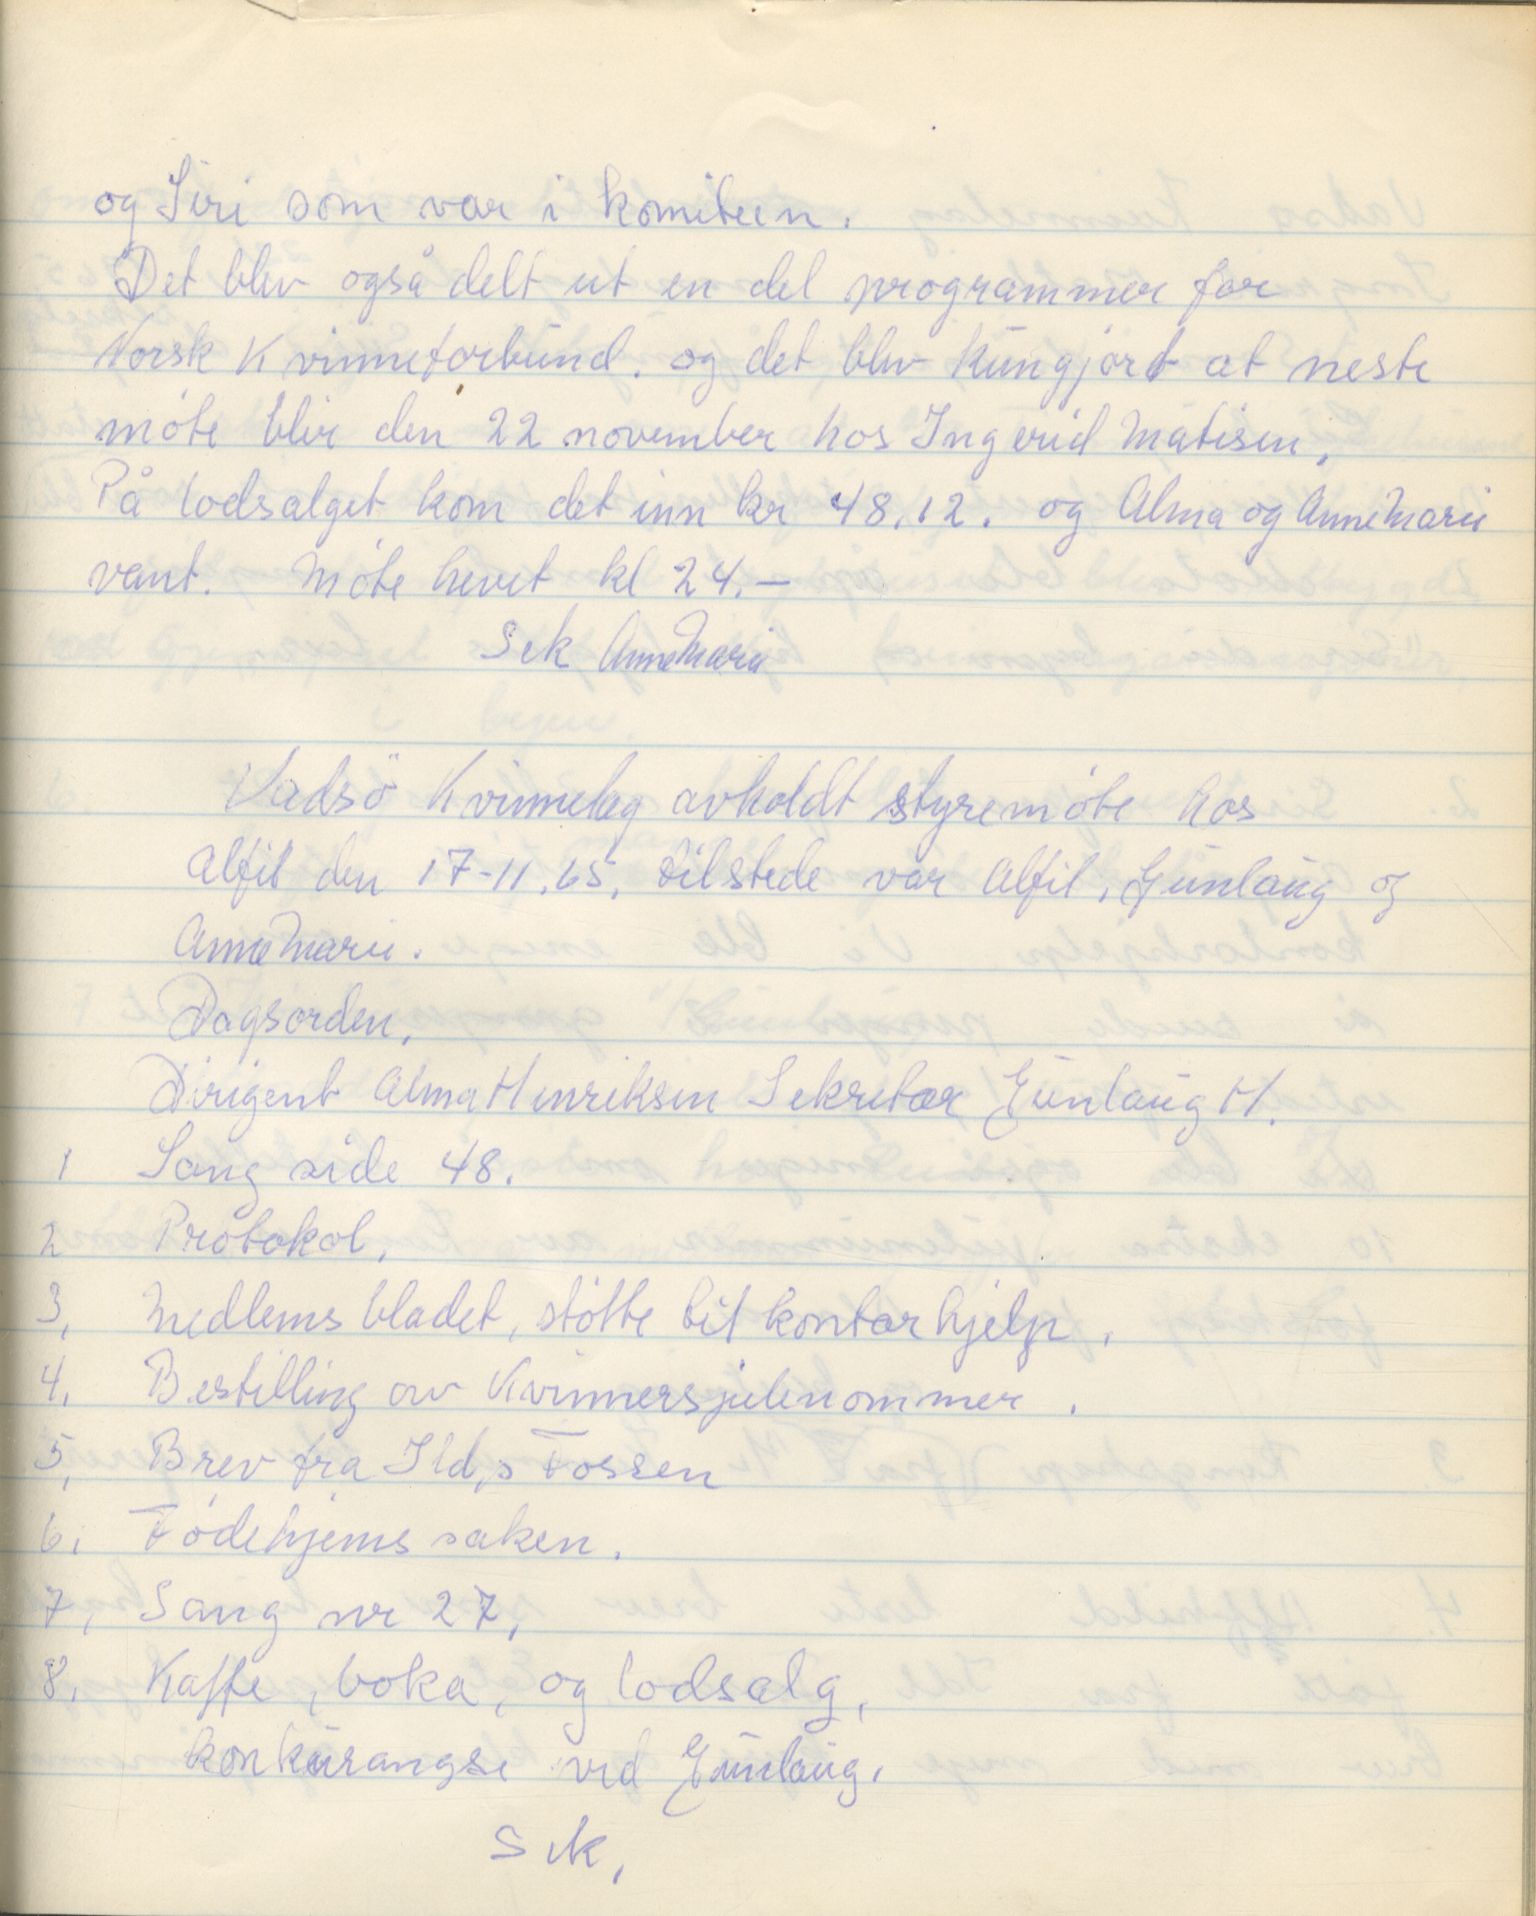 og Siri som var i komiteen.
Det blev også delt ut en del programmer for
Norsk Kvinneforbund. og det blev kungjort at neste
möte blir den 22 november hos Ingerid Matisen,
På lodsalget kom det inn kr 48,12. og Alma og AnneMarie
vant. Möte hevet kl 24.—
Sek AnneMarie
Vadsö Kvinnelag avholdt styremöte hos
Alfil den 17-11.65, tilstede var Alfil, Gunlaug og
AnneMarie.
Dagsorden,
Dirigent Alma Henriksen Sekretær Gunlaug H.
1 Sang side 48.
2 Protokol,
3, Medlemsbladet, stötte til kontorhjelp,
4, Bestilling av Kvinnersjulenommer.
5, Brev fra Ild,s Fossen
6, Födehjems saken.
7, Sang nr 27,
8, Kaffe, boka, og lodsalg,
konkurangse ved Gunlaug,
Sek,